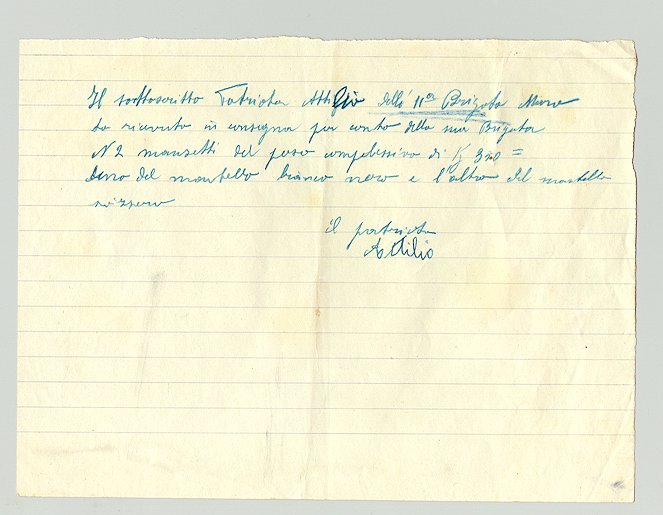 Il sottoscritto Patriota Attilio della 11a Brigata Muro
ha ricevuto in consegna per conto della sua Brigata
N 2 manzetti del peso complessivo di Kg 320 =
uno del mantello bianco nero e l'altro del mantello
svizzero
il patriota
Attilio